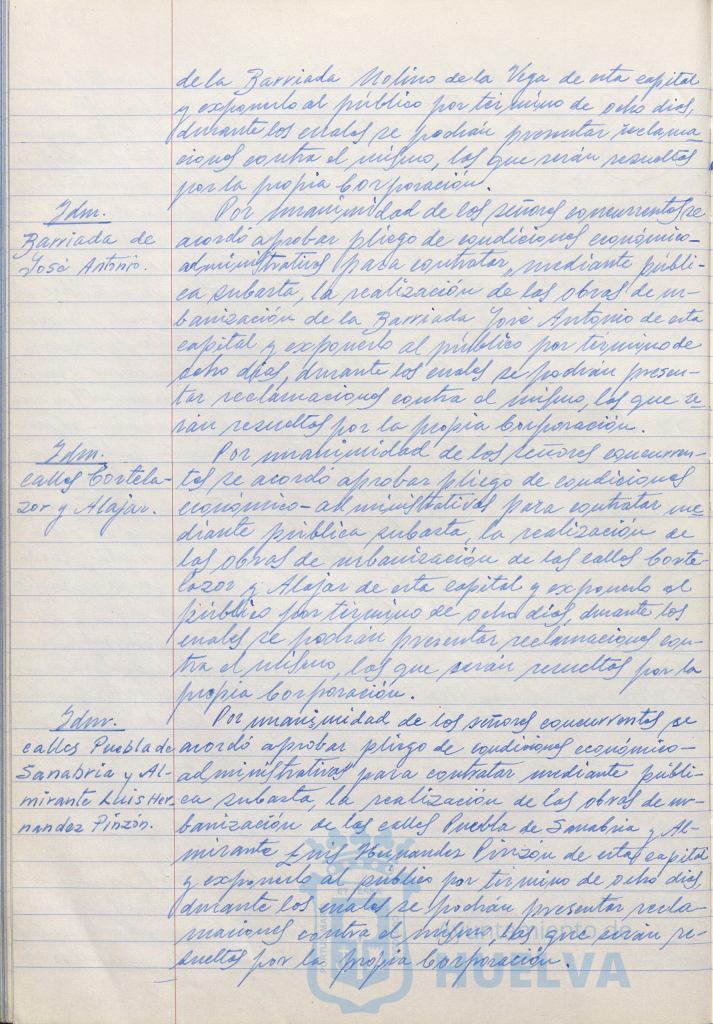 de la Barriada Molino de la Vega de esta capital
y exponerlo al público por término de ocho dias,
durante los cuales se podrán presentar reclama-
ciones contra el mismo, las que serán resueltas
por la propia Corporación.
Idm.
Barriada de
José Antonio.
Por unanimidad de los señores concurrentes se
acordó aprobar pliego de condiciones económico-
administrativas para contratar, mediante públi-
ca subasta, la realización de las obras de ur-
banización de la Barriada José Antonio de esta
capital y exponerlo al público por término de
ocho dias, durante los cuales se podrán presen-
tar reclamaciones contra el mismo, las que se-
rán resueltas por la propia Corporación.
Idm.
calles Cortela-
zor y Alajar.
Por unanimidad de los señores concurren-
tes se acordó aprobar pliego de condiciones
económico-administrativas para contratar me-
diante pública subasta, la realización de
las obras de urbanización de las calles Corte-
lazor y Alajar de esta capital y exponerlo al
público por término de ocho dias, durante los
cuales se podrán presentar reclamaciones con-
tra el mismo, las que serán resueltas por la
propia Corporación.
Idm.
calles Puebla de
Sanabria y Al-
mirante Luis Her-
nandez Pinzón.
Por unanimidad de los señores concurrentes se
acordó aprobar pliego de condiciones económico-
administrativas para contratar mediante públi-
ca subasta, la realización de las obras de ur-
banización de las calles Puebla de Sanabria y Al-
mirante Luis Hernandez Pinzón de esta capital
y exponerlo al público por término de ocho dias
durante los cuales se podrán presentar recla-
maciones contra el mismo, las que serán re-
sueltas por la propia Corporación.
Ayuntamiento de
HUELVA